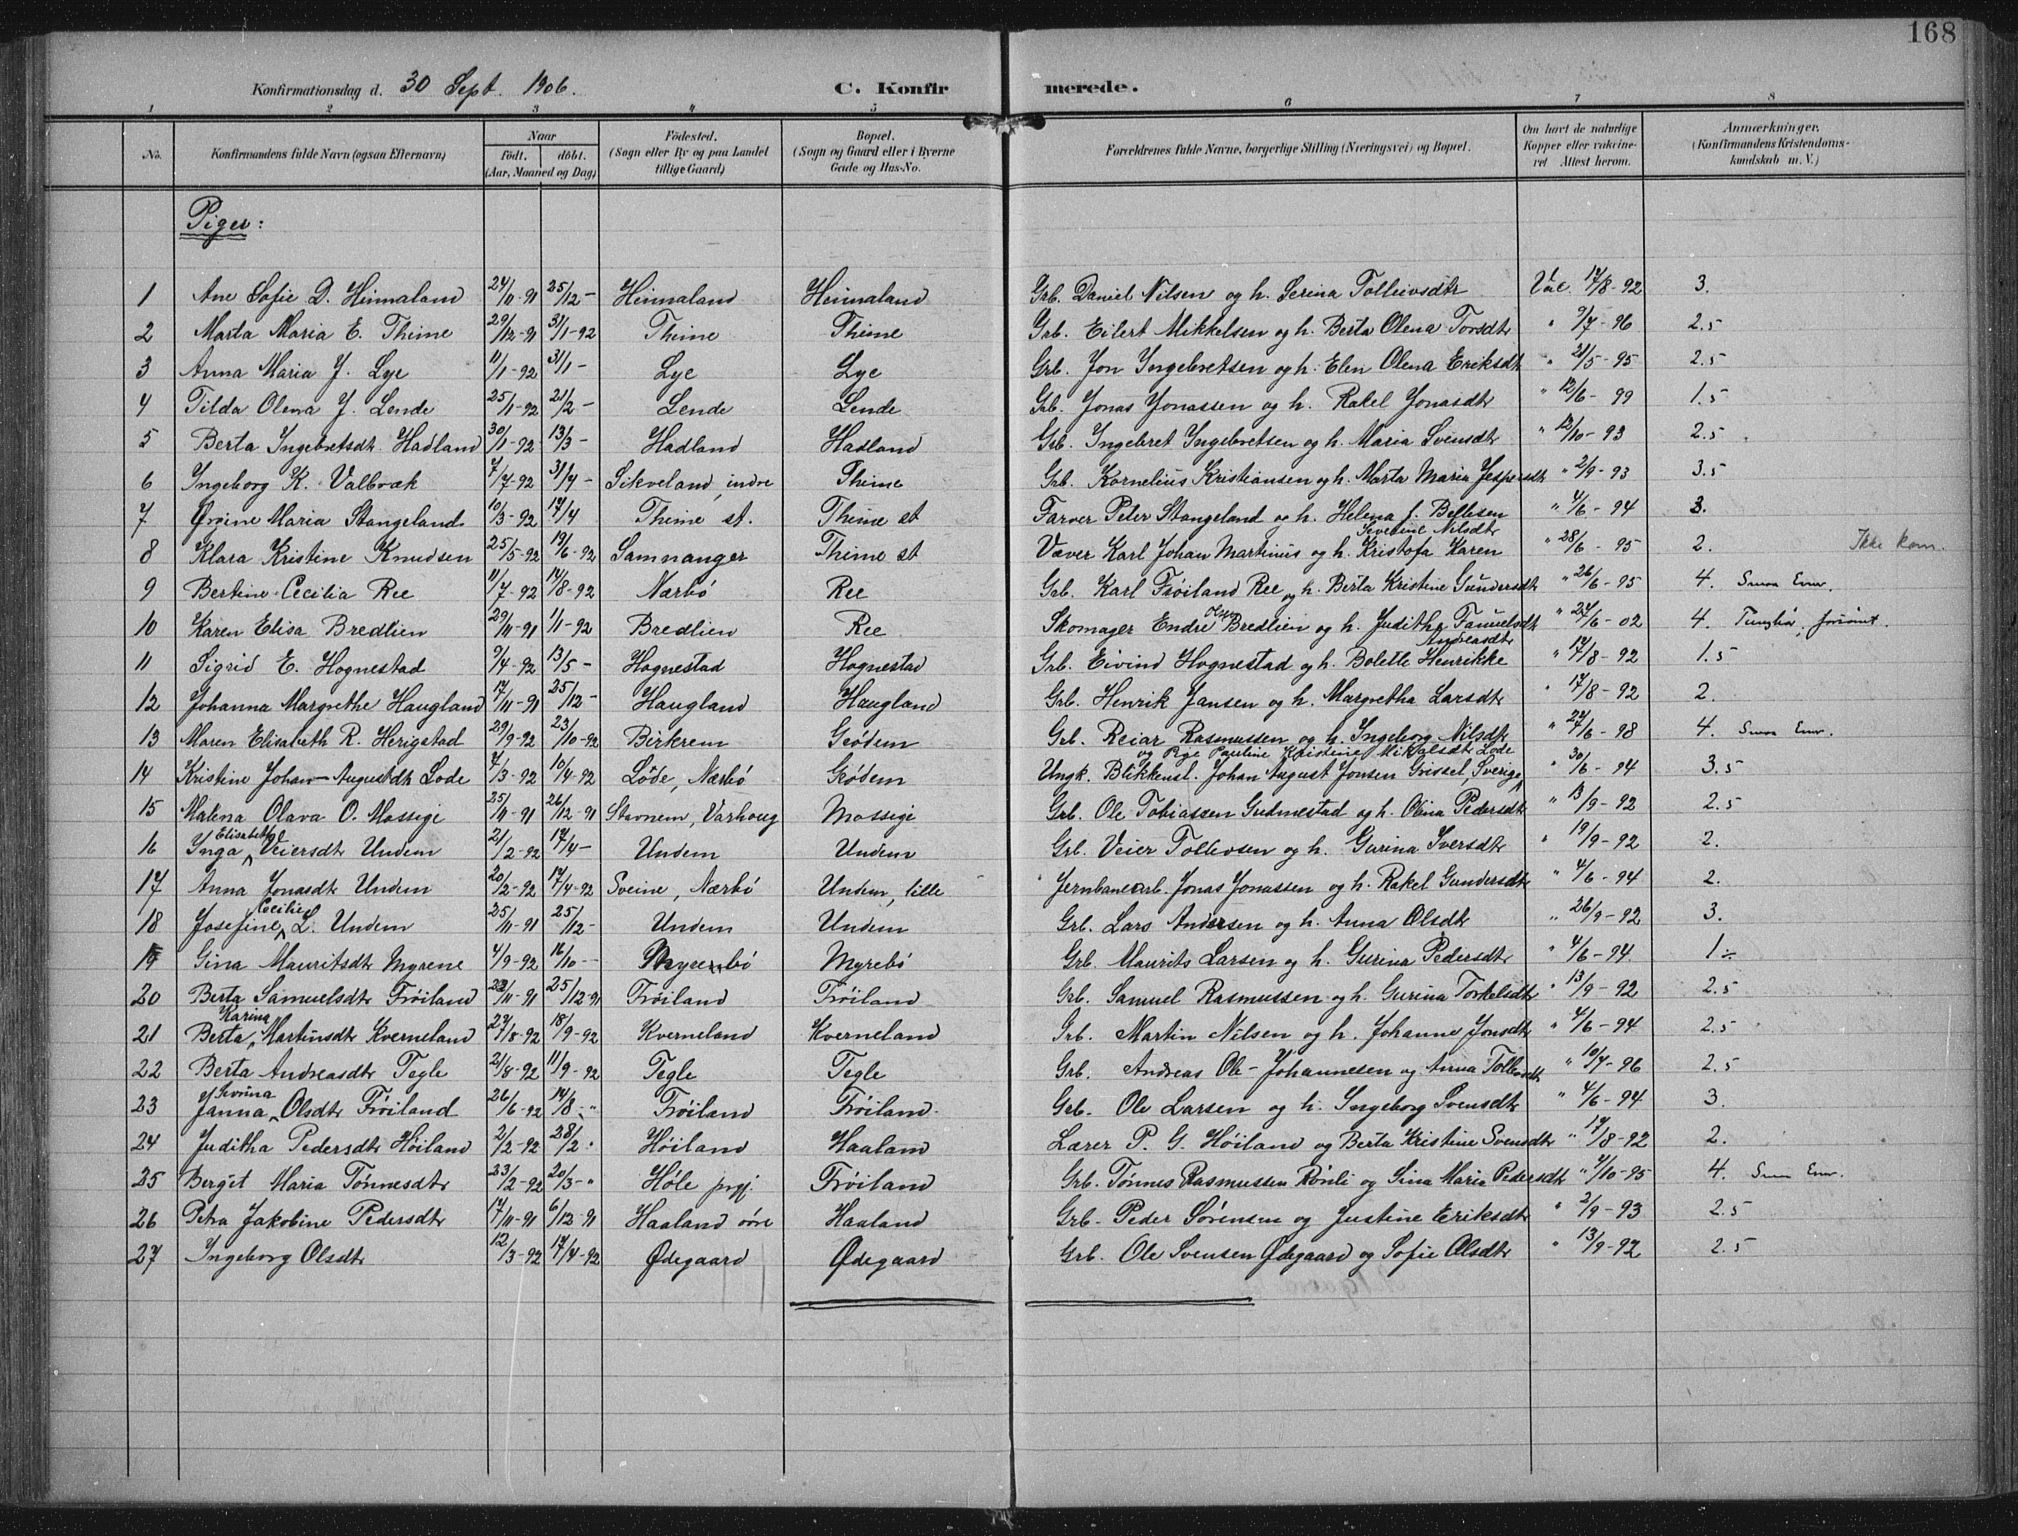 168
Konfirmationsdag d. 30 Sept. 1906. C. Konfir merede.
1 2 3 4 5 6 7 8
No. Konfirmandens fulde Navn (ogsaa Efternavn) Naar født, døbt. (Aar, Maaned og Dag) Fødested. (Sogn eller By og paa Landet tillige Gaard) Bopæl. (Sogn og Gaard eller i Byerne Gade og Hus-No. Forældrenes fulde Navne, borgerlige Stilling (Næringsvei) og Bopæl. Om havt de naturlige Kopper eller vakcineret Attest herom. Anmærkninger. (Konfirmandens Kristendomskundskab m. V.)
Piger:
1 Ane Sofie D. Hinnaland 24/11-91 25/12- Hinnaland Hinnaland Grb. Daniel Nilsen og h. Serina Tolleivsdtr Vac. 17/8-92 3.
2 Marta Maria E. Thime 29/12-91 31/1-92 Thime Thime Grb. Eilert Mikkelsen og h. Berta Olena Torsdtr " 9/7-96 2.5
3 Anna Maria J. Lye 11/1-92 31/1- Lye Lye Grb. Jon Ingebretsen og h. Elen Olena Eriksdtr " 21/5-95 2.5
4 Tilda Olena J. Lende 25/1-92 21/2- Lende Lende Grb. Jonas Jonassen og h. Rakel Jonasdtr " 12/6-99 1.5
5 Berta Ingebretsdt. Hadland 30/1-92 13/3- Hadland Hadland Grb. Ingebret Ingebretsen og h. Maria Svensdtr " 12/10-93 2.5
6 Ingeborg K. Valbræk 7/7-92 31/7- Sikveland, indre Thime Grb. Kornelius Kristiansen og h. Marta Maria Jespersdtr " 2/9-93 3.5
7 Maria Stangeland 10/3-92 17/4 Thime st. Thime st Farver Peter Stangeland og h. Helena f. Bellesen " 4/6-94 3.
8 Klara Kristine Knudsen 25/5-92 19/6-92 Samnanger Thime st Væver Karl Johan Martinus og h. Kristofa Karen Severine Nilsdtr " 28/6-95 2. Ikke kom.
9 Bertine Cecilia Ree 11/7-92 14/8-92 Nærbø Ree Grb. Karl Frøiland Ree og h. Berta Kristine Gundersdtr " 26/6-95 4. Smaa Evner.
10 Karen Elisa Bredlien 29/11-91 1/1-92 Bredlien Ree Skomager Endre Olsen Bredlien og h. Juditha Samuelsdtr " 27/6-02 4. Tunghør, forsømt.
11 Sigrid E. Hognestad 9/4-92 13/5- Hognestad Hognestad Grb. Eivind Hognestad og h. Bolette Henrikke Andreasdtr " 17/8-92 1.5
12 Johanna Margrethe Haugland 17/11-91 25/12- Haugland Haugland Grb. Henrik Jansen og h. Margretha Larsdtr " 17/8-92 2.
13 Maren Elisabeth R. Herigstad 29/9-92 23/10-92 Birkrem Grødem Grb. Reiar Rasmussen og h. Ingeborg Nilsdtr " 27/6-98 4. Smaa Evner.
14 Kristine Johan-Augustdt Lode 7/3-92 10/4-92 Lode, Nærbø Grødem Ungk. Blikkensl. Johan August Jonsen Grissel, Sverige, og Pige Pauline Kristine Mikalsdtr Lode " 30/6-94 3.5
15 Malena Olava O. Mossige 25/11-91 26/12-91 Stavnem, Varhoug Mossige Grb. Ole Tobiassen Gudmestad og h. Olina Pedersdtr " 13/9-92 2.5
16 Inga Elisabethe Veiersdtr Undem 21/2-92 17/4- Undem Undem Grb. Veier Tollevsen og h. Gurina Iversdtr " 19/9-92 2.
17 Anna Jonasdtr Undem 20/2-92 17/4-92 Sveine, Nærbø Undem, lille Jernbanearb. Jonas Jonassen og h. Rakel Gundersdtr " 4/6-94 2.
18 Josefine Cecilie L. Undem 25/11-91 25/12- Undem Undem Grb. Lars Andersen og h. Anna Olsdtr " 26/9-92 3.
19 Gina Mauritsdtr Myrene 4/9-92 16/10- Myrebø Myrebø Grb. Maurits Larsen og h. Gurina Pedersdtr " 4/6-94 1÷
20 Berta Samuelsdtr Frøiland 22/11-91 25/12-91 Frøiland Frøiland Grb. Samuel Rasmussen og h. Gurina Torkelsdtr " 13/9-92 2.5
21 Berta Karina Martinsdtr Kverneland 27/8-92 18/9-92 Kverneland Kverneland Grb. Martin Nilsen og h. Johanne Jonsdtr " 4/6-94 2.5
22 Berta Andreasdtr Tegle 21/8-92 11/9-92 Tegle Tegle Grb. Andreas Ole-Johannesen og Anna Tollevsdtr " 10/7-96 2.5
23 Janna Olsdtr Frøiland 26/6-92 14/8 " Frøiland Frøiland Grb. Ole Larsen og h. Ingeborg Svensdtr " 4/6-94 3.
24 Juditha Pedersdtr Høiland 2/2-92 28/2 Høiland Haaland Lærer P. G. Høiland og Berta Kristine Svensdtr " 17/8-92 2.
25 Berget Maria Tønnesdtr 23/2-92 20/3-" Høle prgj. Frøiland Grb. Tønnes Rasmussen Rønli og Sina Maria Pedersdtr " 4/10-95 4. Smaa Evner.
26 Petra Jakobine Pedersdtr 17/11-91 6/12-91 Haaland øvre Haaland Grb. Peder Sørensen og Justine Eriksdtr " 2/9-93 2.5
27 Ingeborg Olsdtr 12/3-92 17/4-92 Ødegaard Ødegaard Grb. Ole Svensen Ødegaard og Sofie Olsdtr " 13/9-92 2.5